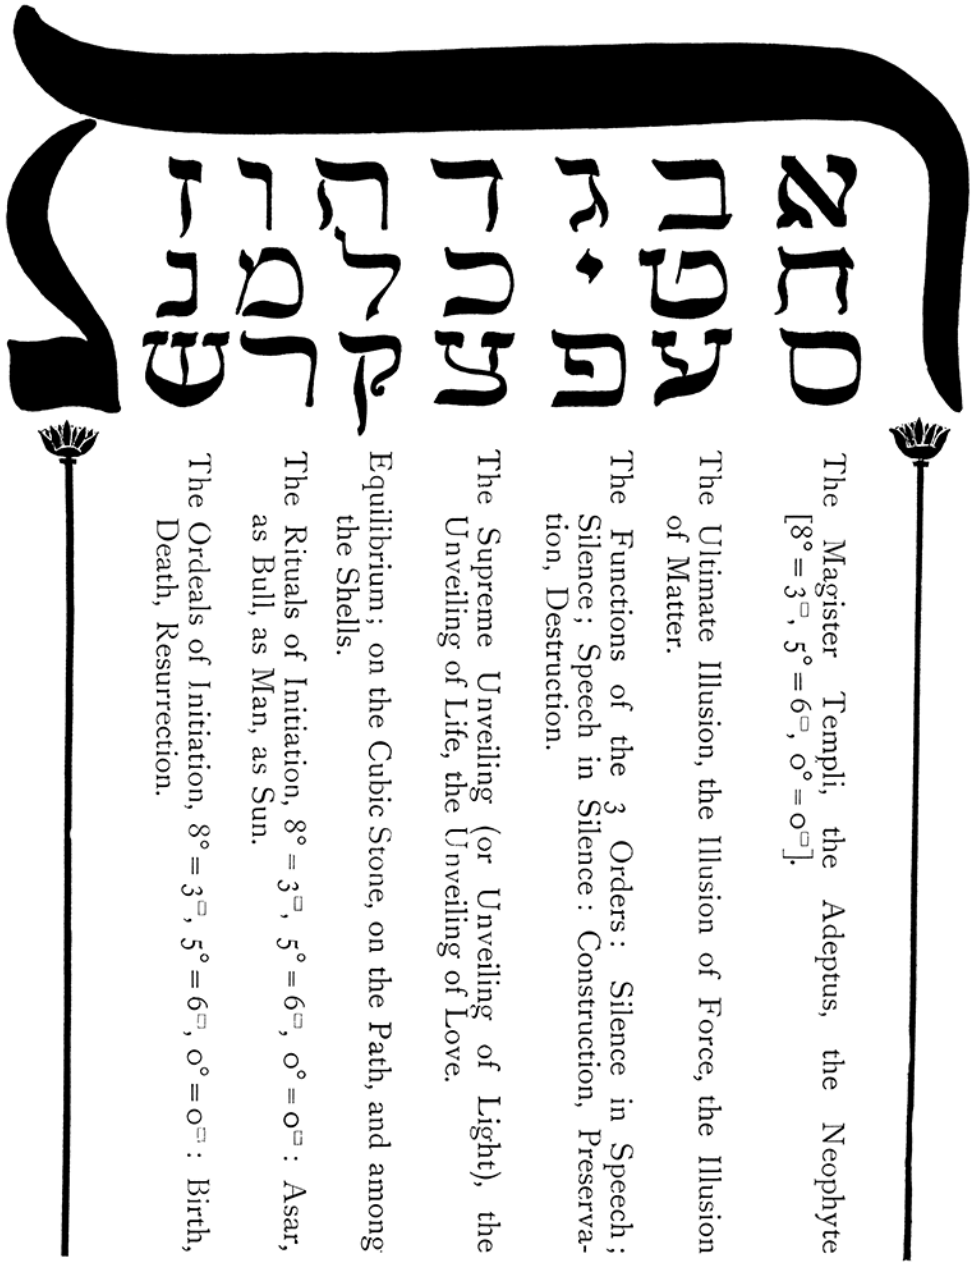 ת
א ח ס
The Magister Templi, the Adeptus, the Neophyte
[8°=3▫, 5°=6▫, 0°=0▫].
ב ט ע
The Ultimate Illusion, the Illusion of Force, the Illusion
of Matter.
ג י פ
The Functions of the 3 Orders: Silence in Speech;
Silence; Speech in Silence: Construction, Preserva-
tion, Destruction.
ד כ צ
The Supreme Unveiling (or Unveiling of Light), the
Unveiling of Life, the Unveiling of Love.
ה ל ק
Equilibrium; on the Cubic Stone, on the Path, and among
the Shells.
ו מ ר
The Rituals of Initiation, 8°=3▫, 5°=6▫, 0°=0▫: Asar,
as Bull, as Man, as Sun.
ז נ ש
The Ordeals of Initiation, 8°=3▫, 5°=6▫, 0°=0▫: Birth,
Death, Resurrection.